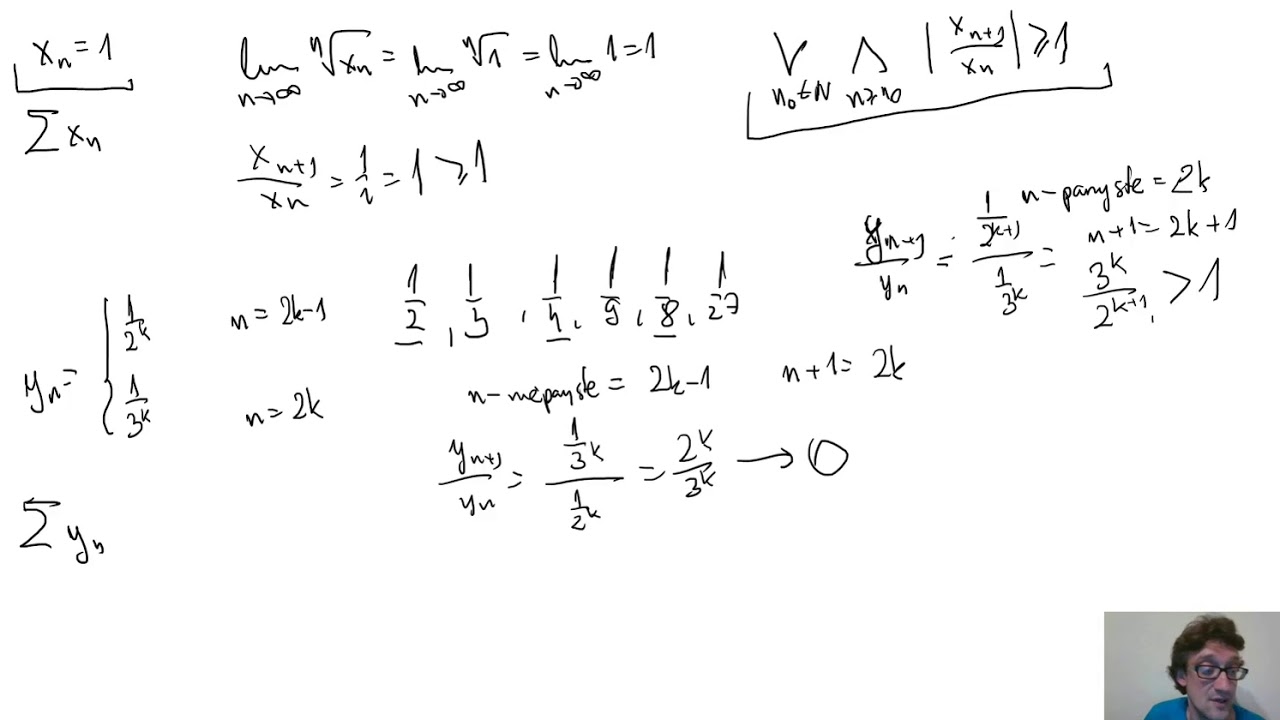 xₙ = 1
lim_{n→∞} ⁿ√xₙ = lim_{n→∞} ⁿ√1 = lim_{n→∞} 1 = 1
⋁_{n₀∈N} ⋀_{n≥n₀} |xₙ₊₁/xₙ| ≥ 1
∑ xₙ
xₙ₊₁/xₙ = 1/1 = 1 ≥ 1
n - parzyste = 2k
n+1 = 2k+1
yₙ₊₁/yₙ = (1/2^{k+1})/(1/3^k) = 3^k/2^{k+1} > 1
yₙ = { 1/2^k n = 2k-1
1/3^k n = 2k
1/2, 1/3, 1/4, 1/9, 1/8, 1/27
n - nieparzyste = 2k-1 n+1 = 2k
yₙ₊₁/yₙ = (1/3^k)/(1/2^k) = 2^k/3^k → 0
∑ yₙ